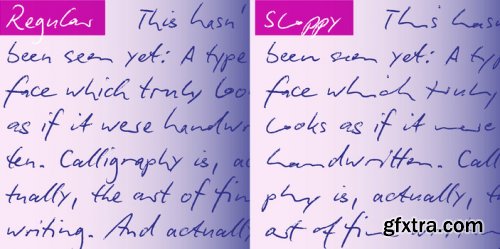 Regular This hasn'
been seen yet: A type
face which truly loo
as if it were handwr
ten. Calligraphy is, ac
tually, the art of fin
writing. And actually,
Sloppy This hasn
been seen yet: A typ
face which truly
looks as if it were
handwritten. Call
phy is, actually, t
art of fin
writing.
gfxtra.com